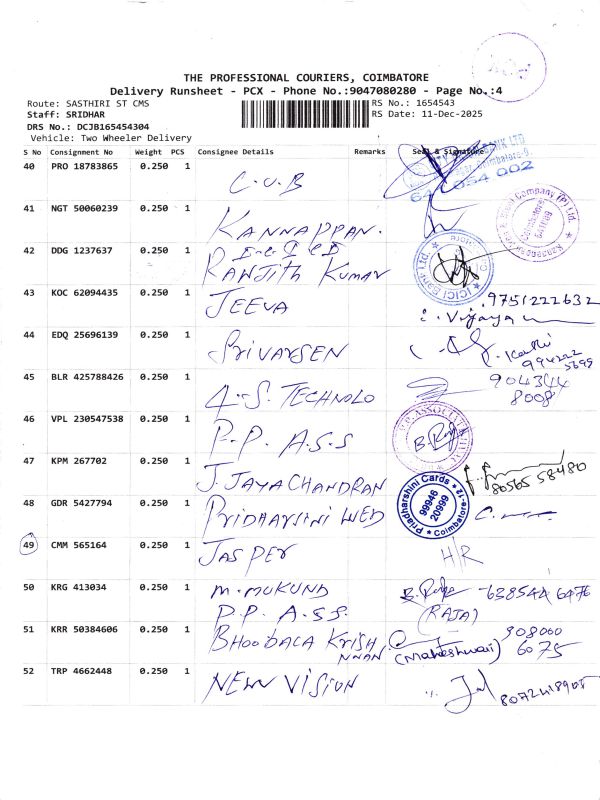 THE PROFESSIONAL COURIERS, COIMBATORE
Delivery Runsheet - PCX - Phone No.:9047080280 - Page No.:4
Route: SASTHIRI ST CMS RS No.: 1654543
Staff: SRIDHAR RS Date: 11-Dec-2025
DRS No.: DCJB165454304
Vehicle: Two Wheeler Delivery
S No Consignment No Weight PCS Consignee Details Remarks Seal & Signature
40 PRO 18783865 0.250 1 C.U.B
641 054 002
41 NGT 50060239 0.250 1 KANNAPPAN.
42 DDG 1237637 0.250 1 RANJITH KUMAR ICICI Bank Ltd.
43 KOC 62094435 0.250 1 JEEVA 9751222632
Vijaya
44 EDQ 25696139 0.250 1 SRIVARSEN
45 BLR 425788426 0.250 1 A.S. TECHNOLO 904344
8008
46 VPL 230547538 0.250 1 P.P. A.S.S
47 KPM 267702 0.250 1 J. JAYACHANDRAN 80565 58480
48 GDR 5427794 0.250 1 PRIDHARSINI WED Priadharshini Cards 99946 20999 Coimbatore-12
49 CMM 565164 0.250 1 JASPER H/R
50 KRG 413034 0.250 1 M. MUKUND 638544 6476
P.P. A.S.S. (RAJA)
51 KRR 50384606 0.250 1 BHOOBALA KRISH 908060
NNAN (Maheshwari) 6075
52 TRP 4662448 0.250 1 NEW VISION